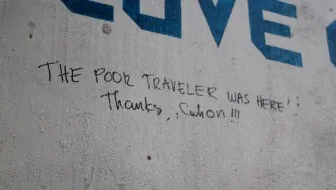 LOVE
THE POOR TRAVELER WAS HERE!
Thanks, Culion!!!